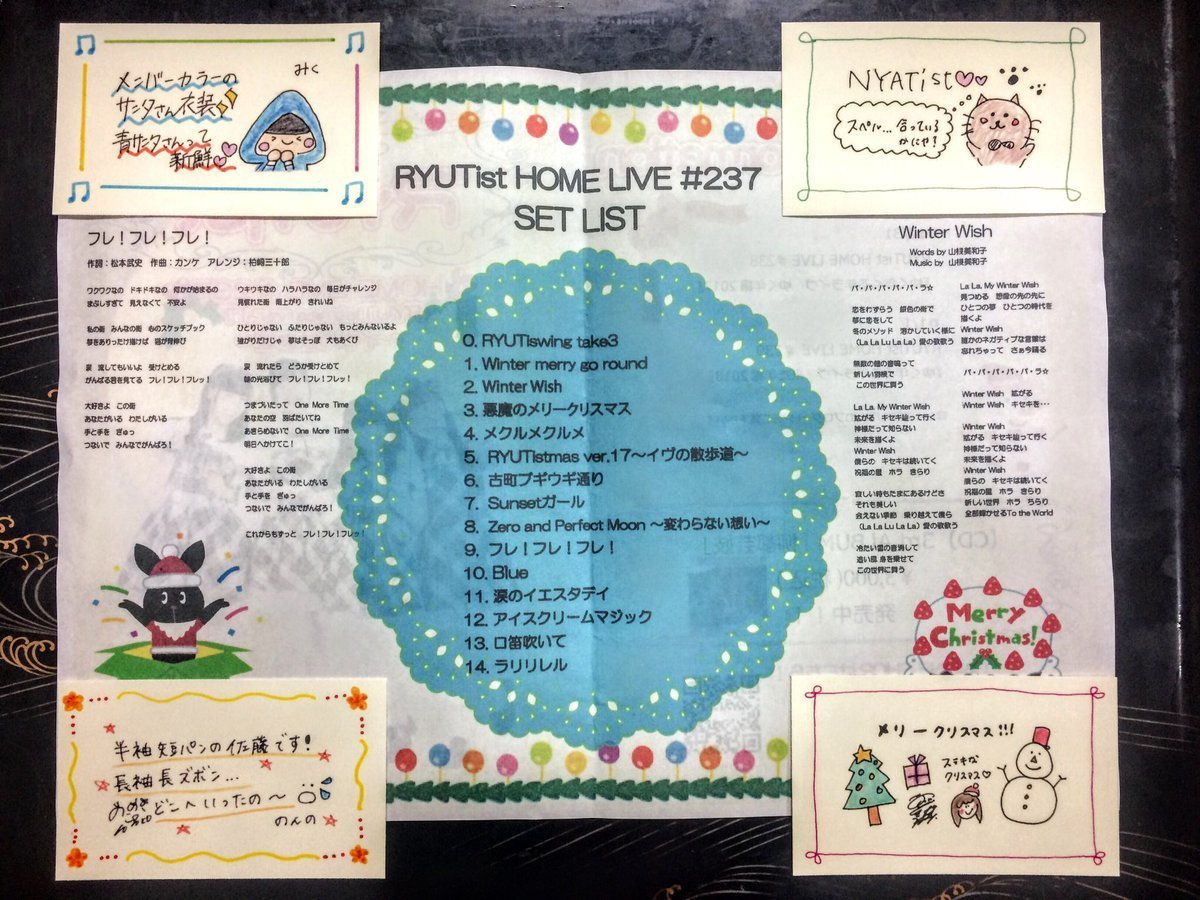 メンバーカラーの
サンタさん衣装
青サンタさんって
新鮮
みく
NYATist
スペル…合っている
かにゃ?
RYUTist HOME LIVE #237
SET LIST
フレ!フレ!フレ!
作詞:松本武史 作曲:カンケ アレンジ:柏崎三十郎
ワクワクなの ドキドキなの 何かが始まるの
まぶしすぎて 見えなくて 不安よ
私の街 みんなの街 心のスケッチブック
夢をありったけ描けば 猫が背伸び
涙 流してもいいよ 受けとめる
がんばる君を見てる フレ!フレッ!
大好きよ この街
あなたがいる わたしがいる
手と手を ぎゅっ
つないで みんなでがんばろ!
ウキウキなの ハラハラなの 毎日がチャレンジ
見慣れた街 雨上がり きれいね
ひとりじゃない ふたりじゃない もっとみんないるよ
強がりだけじゃ 夢はそっぽ 犬もあくび
涙 流れたら どうか受けとめて
朝の光浴びて フレ!フレ!フレッ!
つまづいたって One More Time
あなたの空 羽ばたいてね
あきらめないで One More Time
明日へかけてこ!
大好きよ この街
あなたがいる わたしがいる
手と手を ぎゅっ
つないで みんなでがんばろ!
これからもずっと フレ!フレ!フレッ!
0. RYUTiswing take3
1. Winter merry go round
2. Winter Wish
3. 悪魔のメリークリスマス
4. メクルメクルメ
5. RYUTistmas ver.17〜イヴの散歩道〜
6. 古町ブギウギ通り
7. Sunsetガール
8. Zero and Perfect Moon 〜変わらない想い〜
9. フレ!フレ!フレ!
10. Blue
11. 涙のイエスタデイ
12. アイスクリームマジック
13. 口笛吹いて
14. ラリリレル
Winter Wish
Words by 山根美和子
Music by 山根美和子
パ・パ・パ・パ・パ・ラ☆
恋をわずらう 銀色の街で
夢に恋をして
冬のメソッド 溶かしていく様に
(La La Lu La La) 愛の歌歌う
無数の鐘の音鳴って
新しい羽根で
この世界に舞う
La La, My Winter Wish
拡がる キセキ辿って行く
神様だって知らない
未来を描くよ
Winter Wish
僕らの キセキは続いてく
祝福の星 ホラ きらり
寂しい時もたまにあるけどさ
それも美しい
会えない季節 乗り越えて僕ら
(La La Lu La La) 愛の歌歌う
冷たい雲の音消して
追い風 身を乗せて
この世界に舞う
La La, My Winter Wish
見つめる 想像の光の先に
ひとつの夢 ひとつの時代を
描くよ
Winter Wish
誰かのネガティブな言葉は
忘れちゃって さぁ今踊る
パ・パ・パ・パ・パ・ラ☆
Winter Wish 拡がる
Winter Wish キセキを…
Winter Wish
拡がる キセキ辿って行く
神様だって知らない
未来を描くよ
Winter Wish
僕らの キセキは続いてく
祝福の星 ホラ きらり
新しい世界 ホラ ちらり
全部輝かせるTo the World
Merry
Christmas!
半袖短パンの佐藤です!
長袖長ズボン…
どこへいったの〜
のんの
メリークリスマス!!!
ステキな
クリスマス